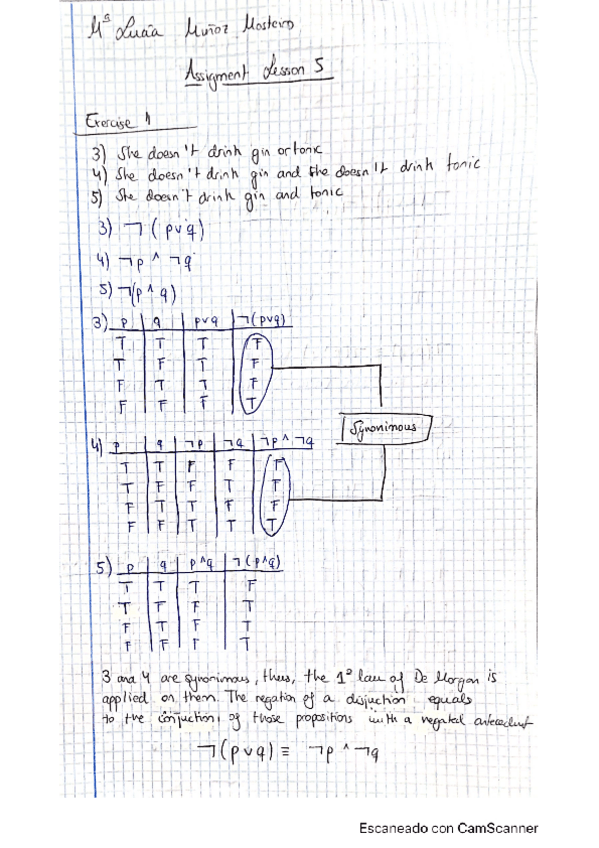 Mª Lucía Muñoz Mosteiro
Assigment Lesson 5
Exercise 1
3) She doesn't drink gin or tonic
4) She doesn't drink gin and she doesn't drink tonic
5) She doesn't drink gin and tonic
3) ¬(p∨q)
4) ¬p ∧ ¬q
5) ¬(p ∧ q)
3) p q p∨q ¬(p∨q)
T T T F
T F T F
F T T F
F F F T
Synonimous
4) p q ¬p ¬q ¬p ∧ ¬q
T T F F F
T F F T T
F T T F F
F F T T T
5) p q p∧q ¬(p∧q)
T T T F
T F F T
F T F T
F F F T
3 and 4 are synonimous, thus, the 1º law of De Morgan is
applied on them. The negation of a disjuction equals
to the conjuction of those propositions with a negated antecedent
¬(p∨q) ≡ ¬p ∧ ¬q
Escaneado con CamScanner